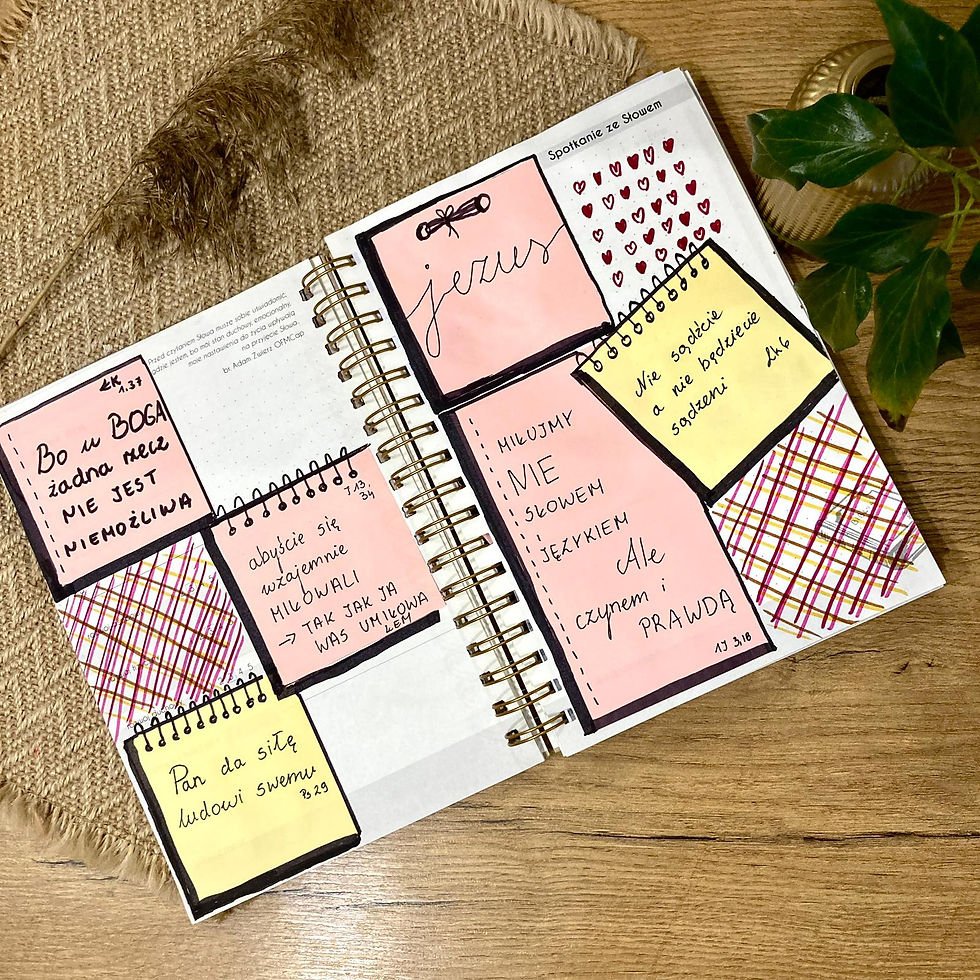 Przed czytaniem Słowa muszę sobie uświadomić,
gdzie jestem, bo mój stan duchowy, emocjonalny,
moje nastawienie do życia wpływają
na przyjęcie Słowa.
br. Adam Zwierz OFMCap
ŁK
1.37
Bo u BOGA
żadna rzecz
NIE JEST
NIEMOŻLIWA
J 13
34
abyście się
wzajemnie
MIŁOWALI
→ TAK JAK JA
WAS UMIŁOWA
ŁEM
Pan da siłę
ludowi swemu
Ps 29
Spotkanie ze Słowem
jezus
Nie sądźcie
a nie będziecie
sądzeni
Łk 6
MIŁUJMY
NIE
SŁOWEM
JĘZYKIEM
Ale
czynem i
PRAWDĄ
1J 3,18